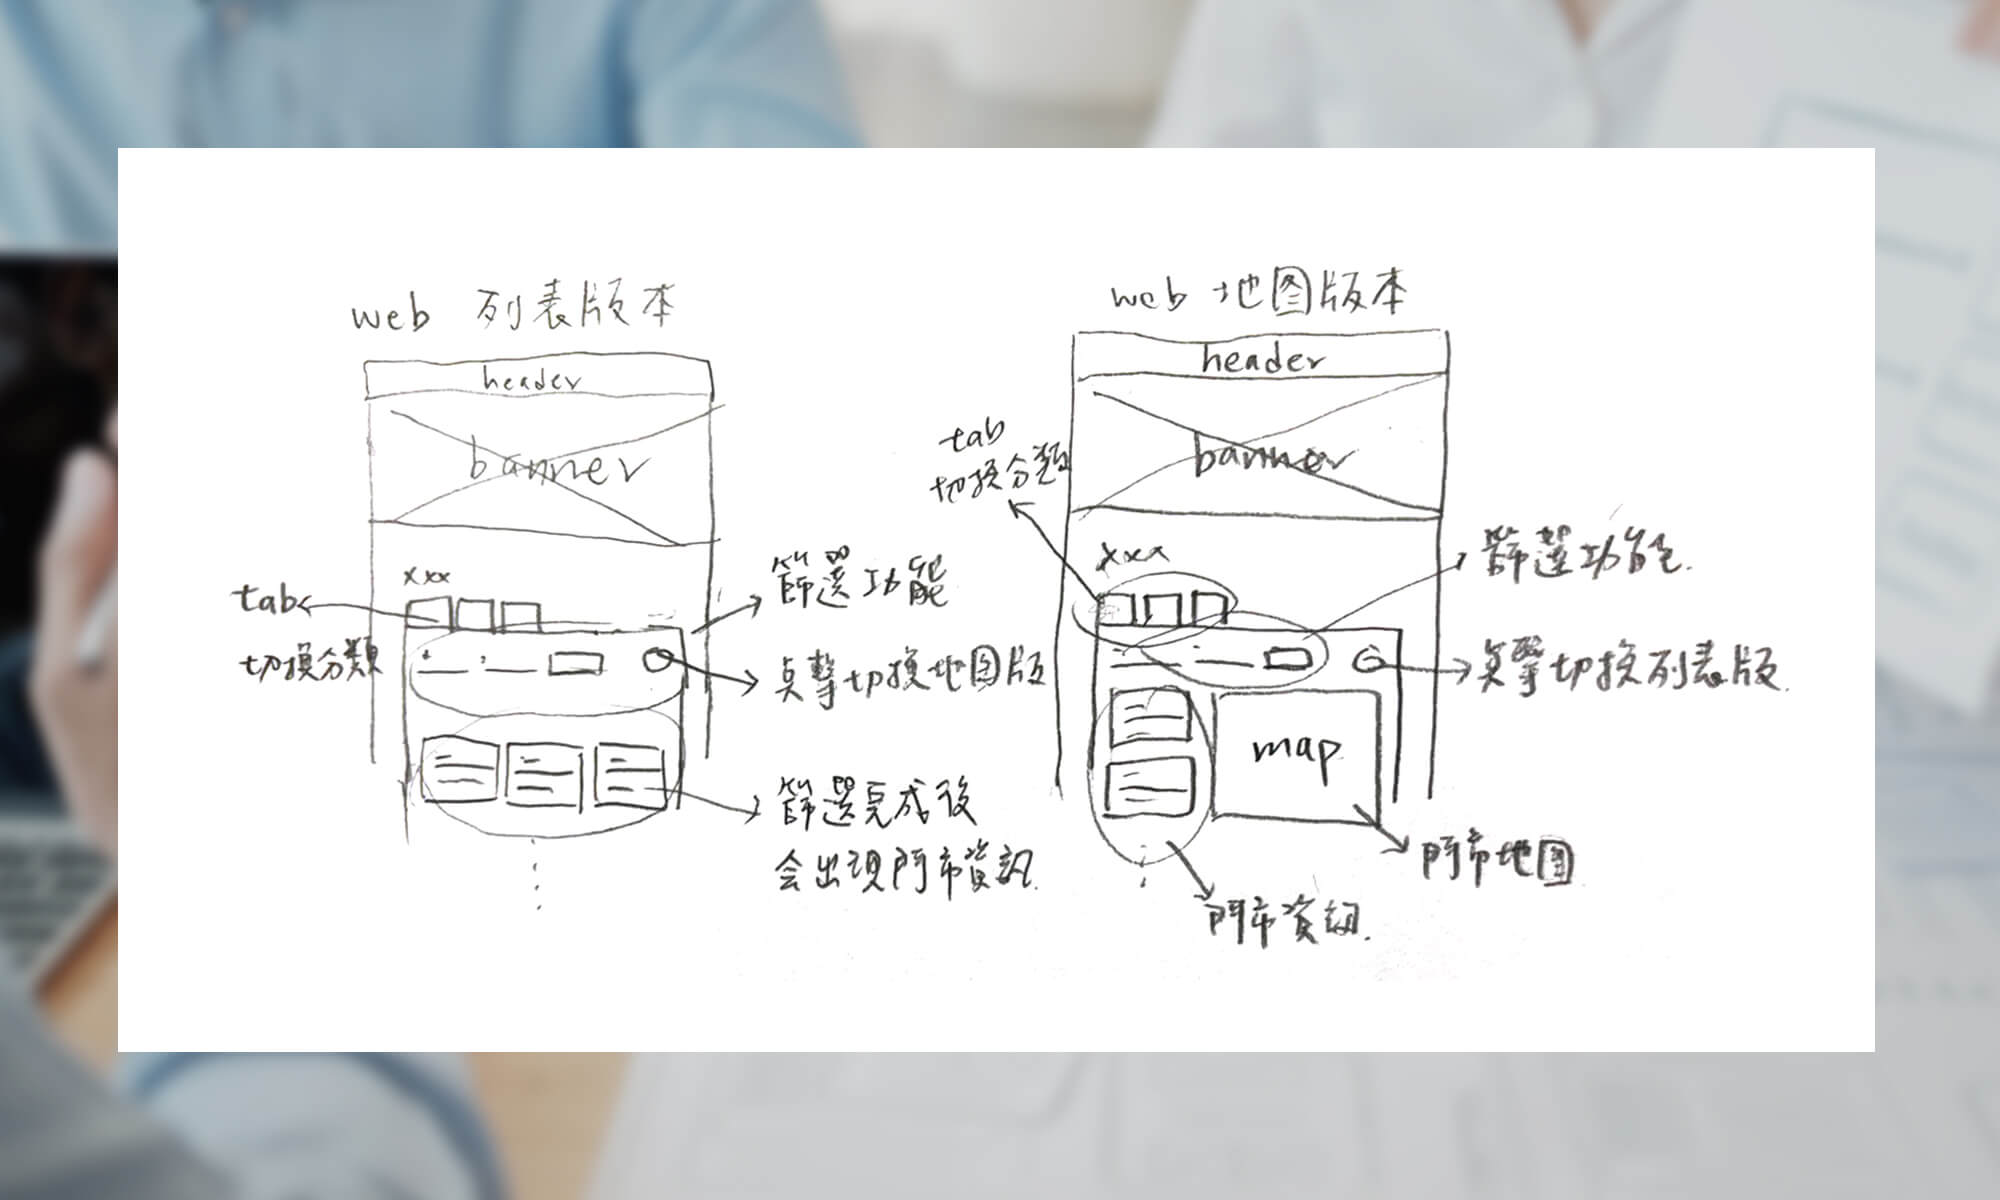 web 列表版本
header
banner
xxx
tab
切換分類
篩選功能
点擊切換地图版
篩選完成後
会出現門市資訊
web 地图版本
header
banner
tab
切換分類
xxx
篩選功能.
点擊切換列表版.
map
門市地图
門市資訊.